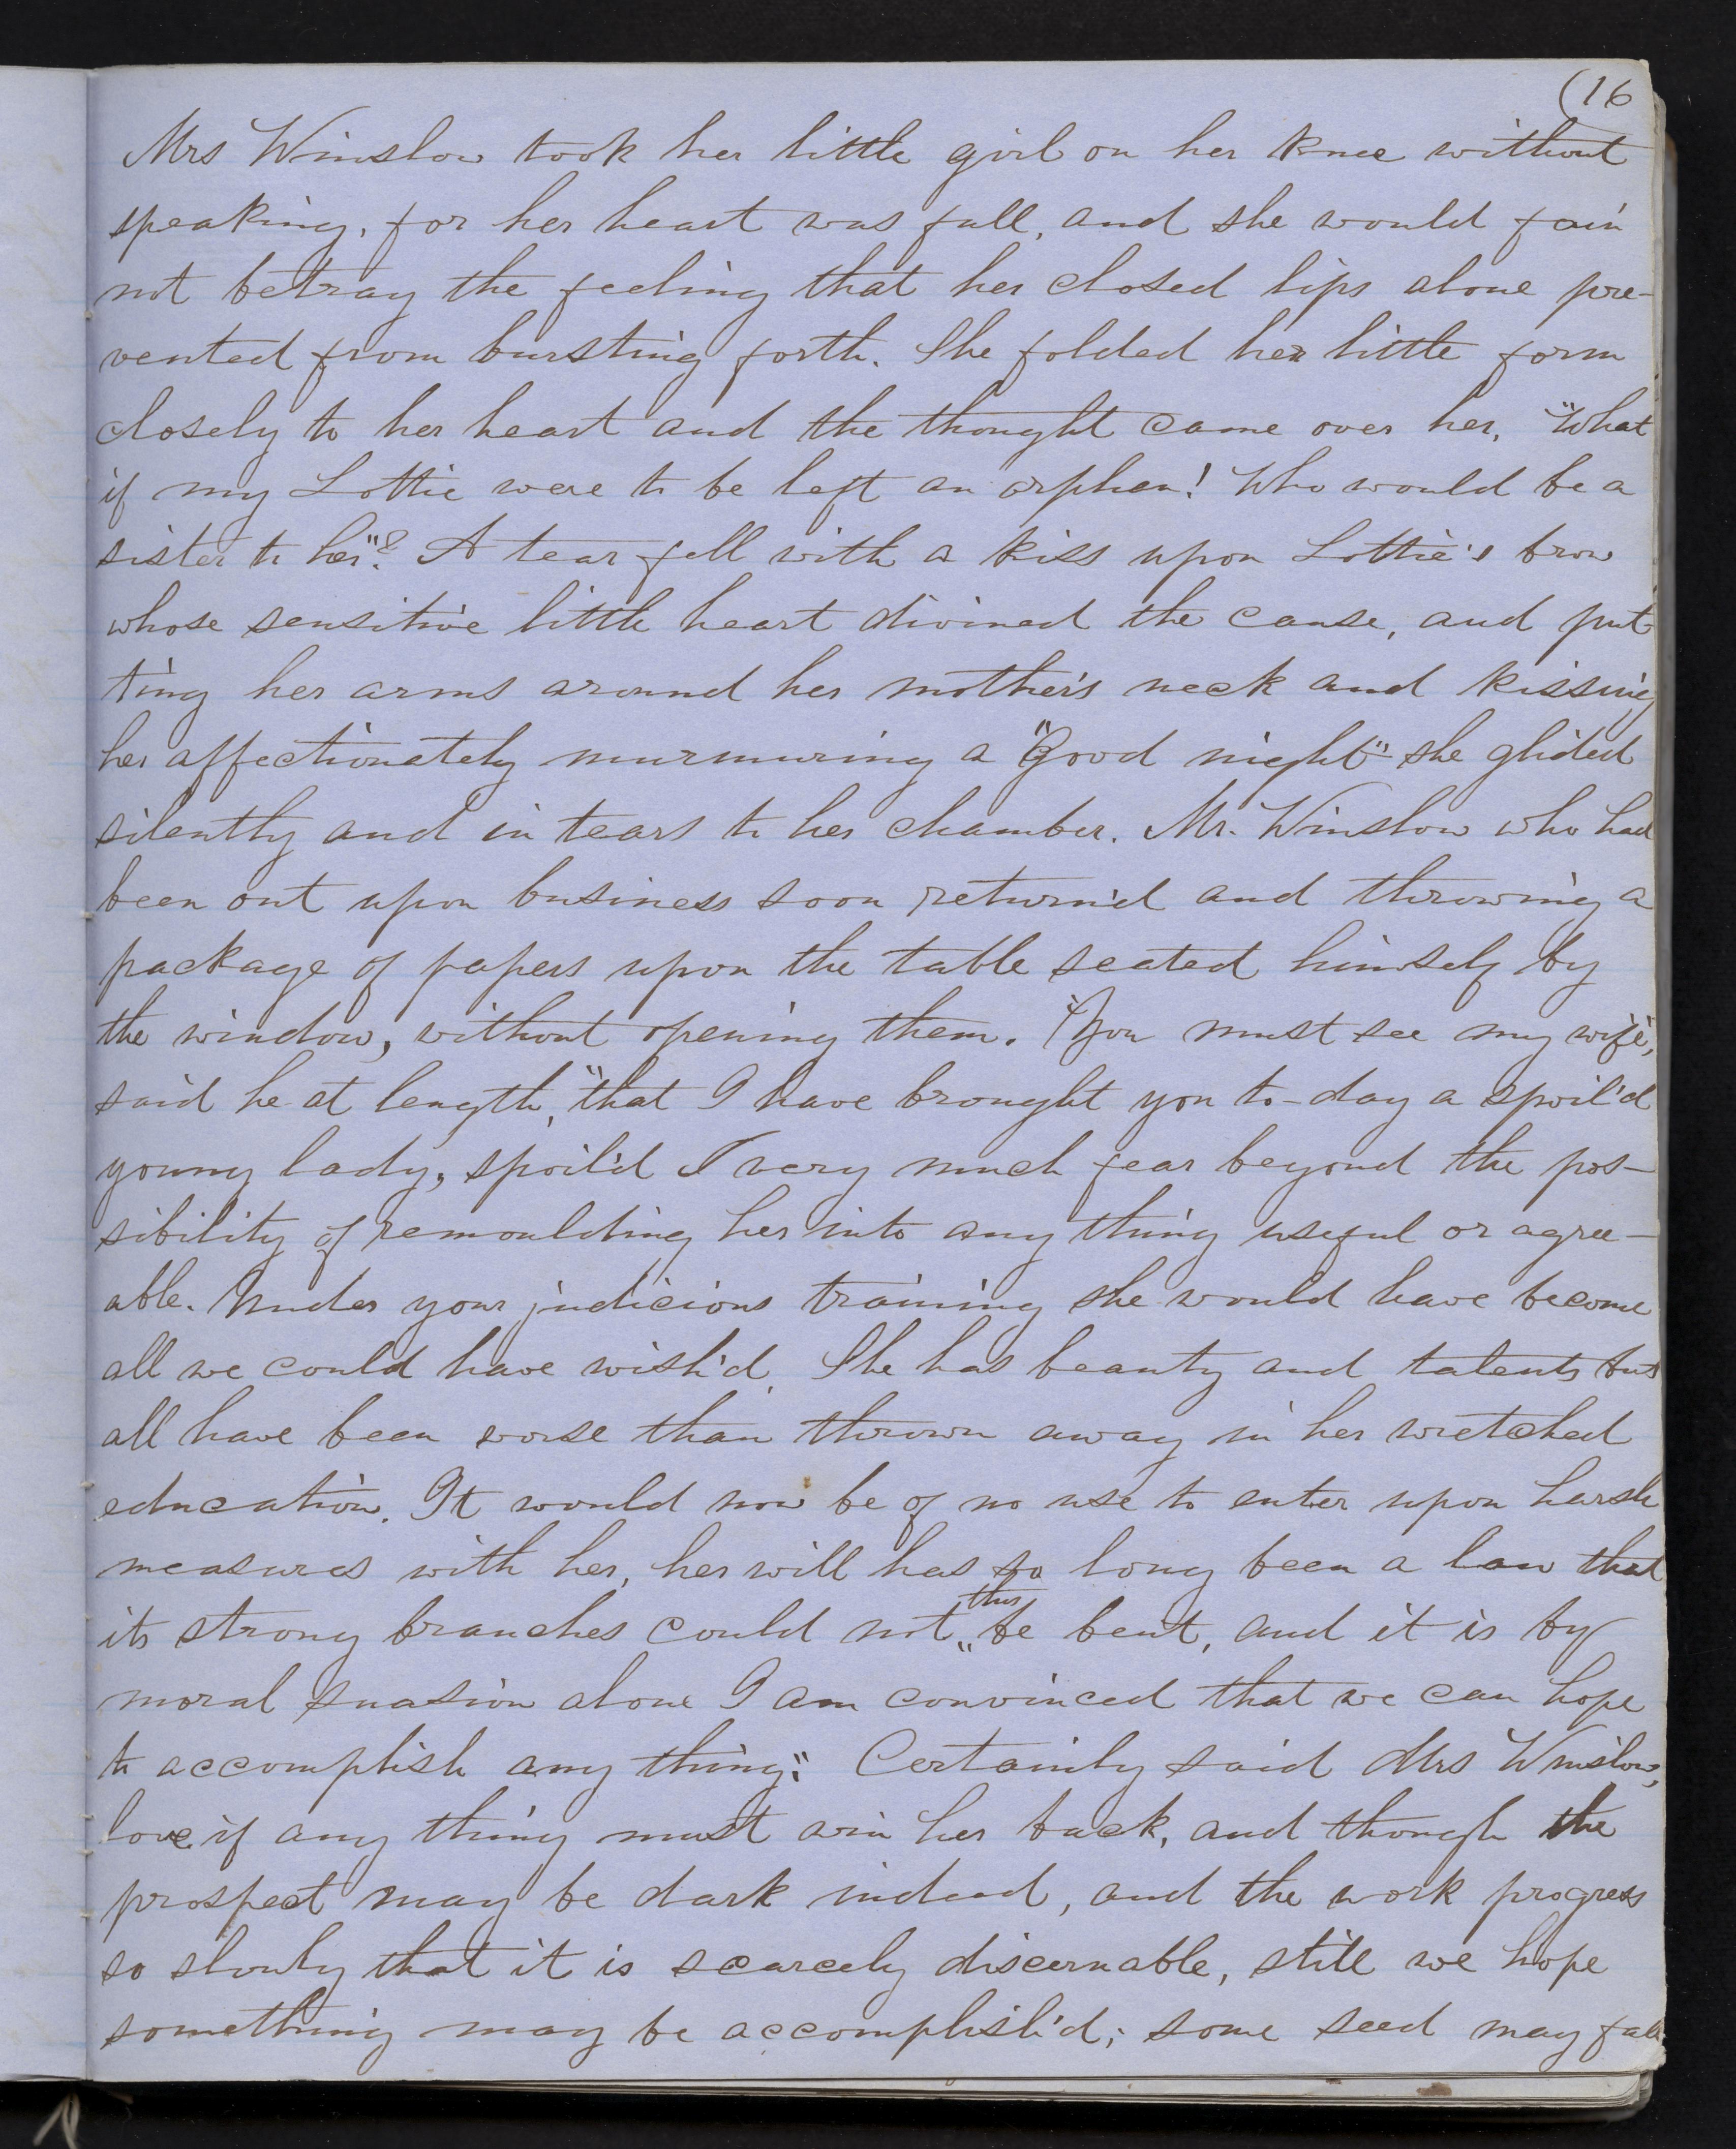 (16
Mrs Winslow took her little girl on her knee without
speaking, for her heart was full, and she would fain
not betray the feeling that her closed lips alone pre-
vented from bursting forth. She folded her little form
closely to her heart and the thought came over her, "What
if my Lottie were to be left an orphan! Who would be a
sister to her"? A tear fell with a kiss upon Lottie's brow
whose sensitive little heart divined the cause, and put-
ting her arms around her mother's neck and kissing
her affectionately murmuring a "Good night" she glided
silently and in tears to her chamber. Mr. Winslow who had
been out upon business soon return'd and throwing a
package of papers upon the table seated himself by
the window, without opening them. "You must see my wife",
said he at length, "that I have brought you to-day a spoil'd
young lady, spoil'd I very much fear beyond the pos-
sibility of remoulding her into any thing useful or agree-
able. Under your judicious training she would have become
all we could have wish'd. She has beauty and talents but
all have been worse than thrown away in her wretched
education. It would now be of no use to enter upon harsh
measures with her, her will has so long been a law that
thus
its strong branches could not " be bent, and it is by
moral suasion alone I am convinced that we can hope
to accomplish any thing." Certainly said Mrs Winslow,
love if any thing must win her back, and though the
prospect may be dark indeed, and the work progress
so slowly that it is scarcely discernable, still we hope
something may be accomplish'd; some seed may fall